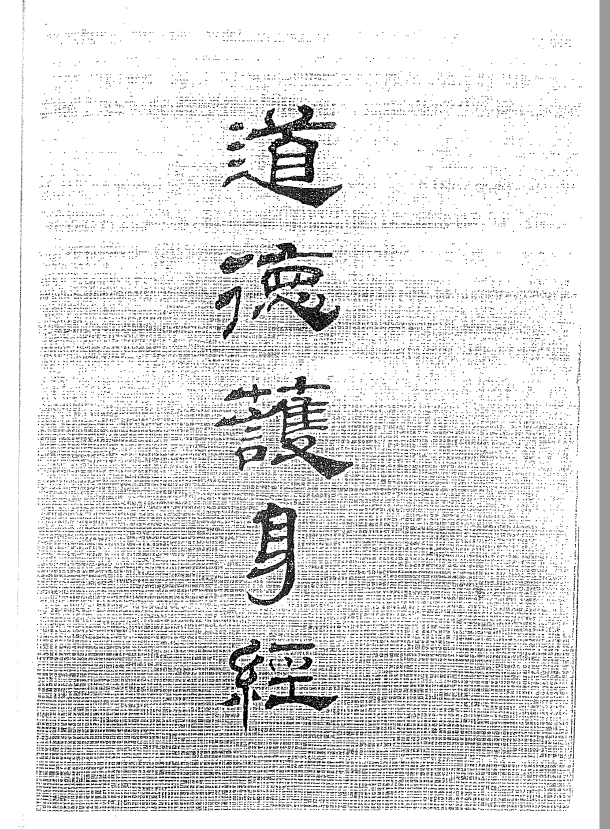 道德護身經